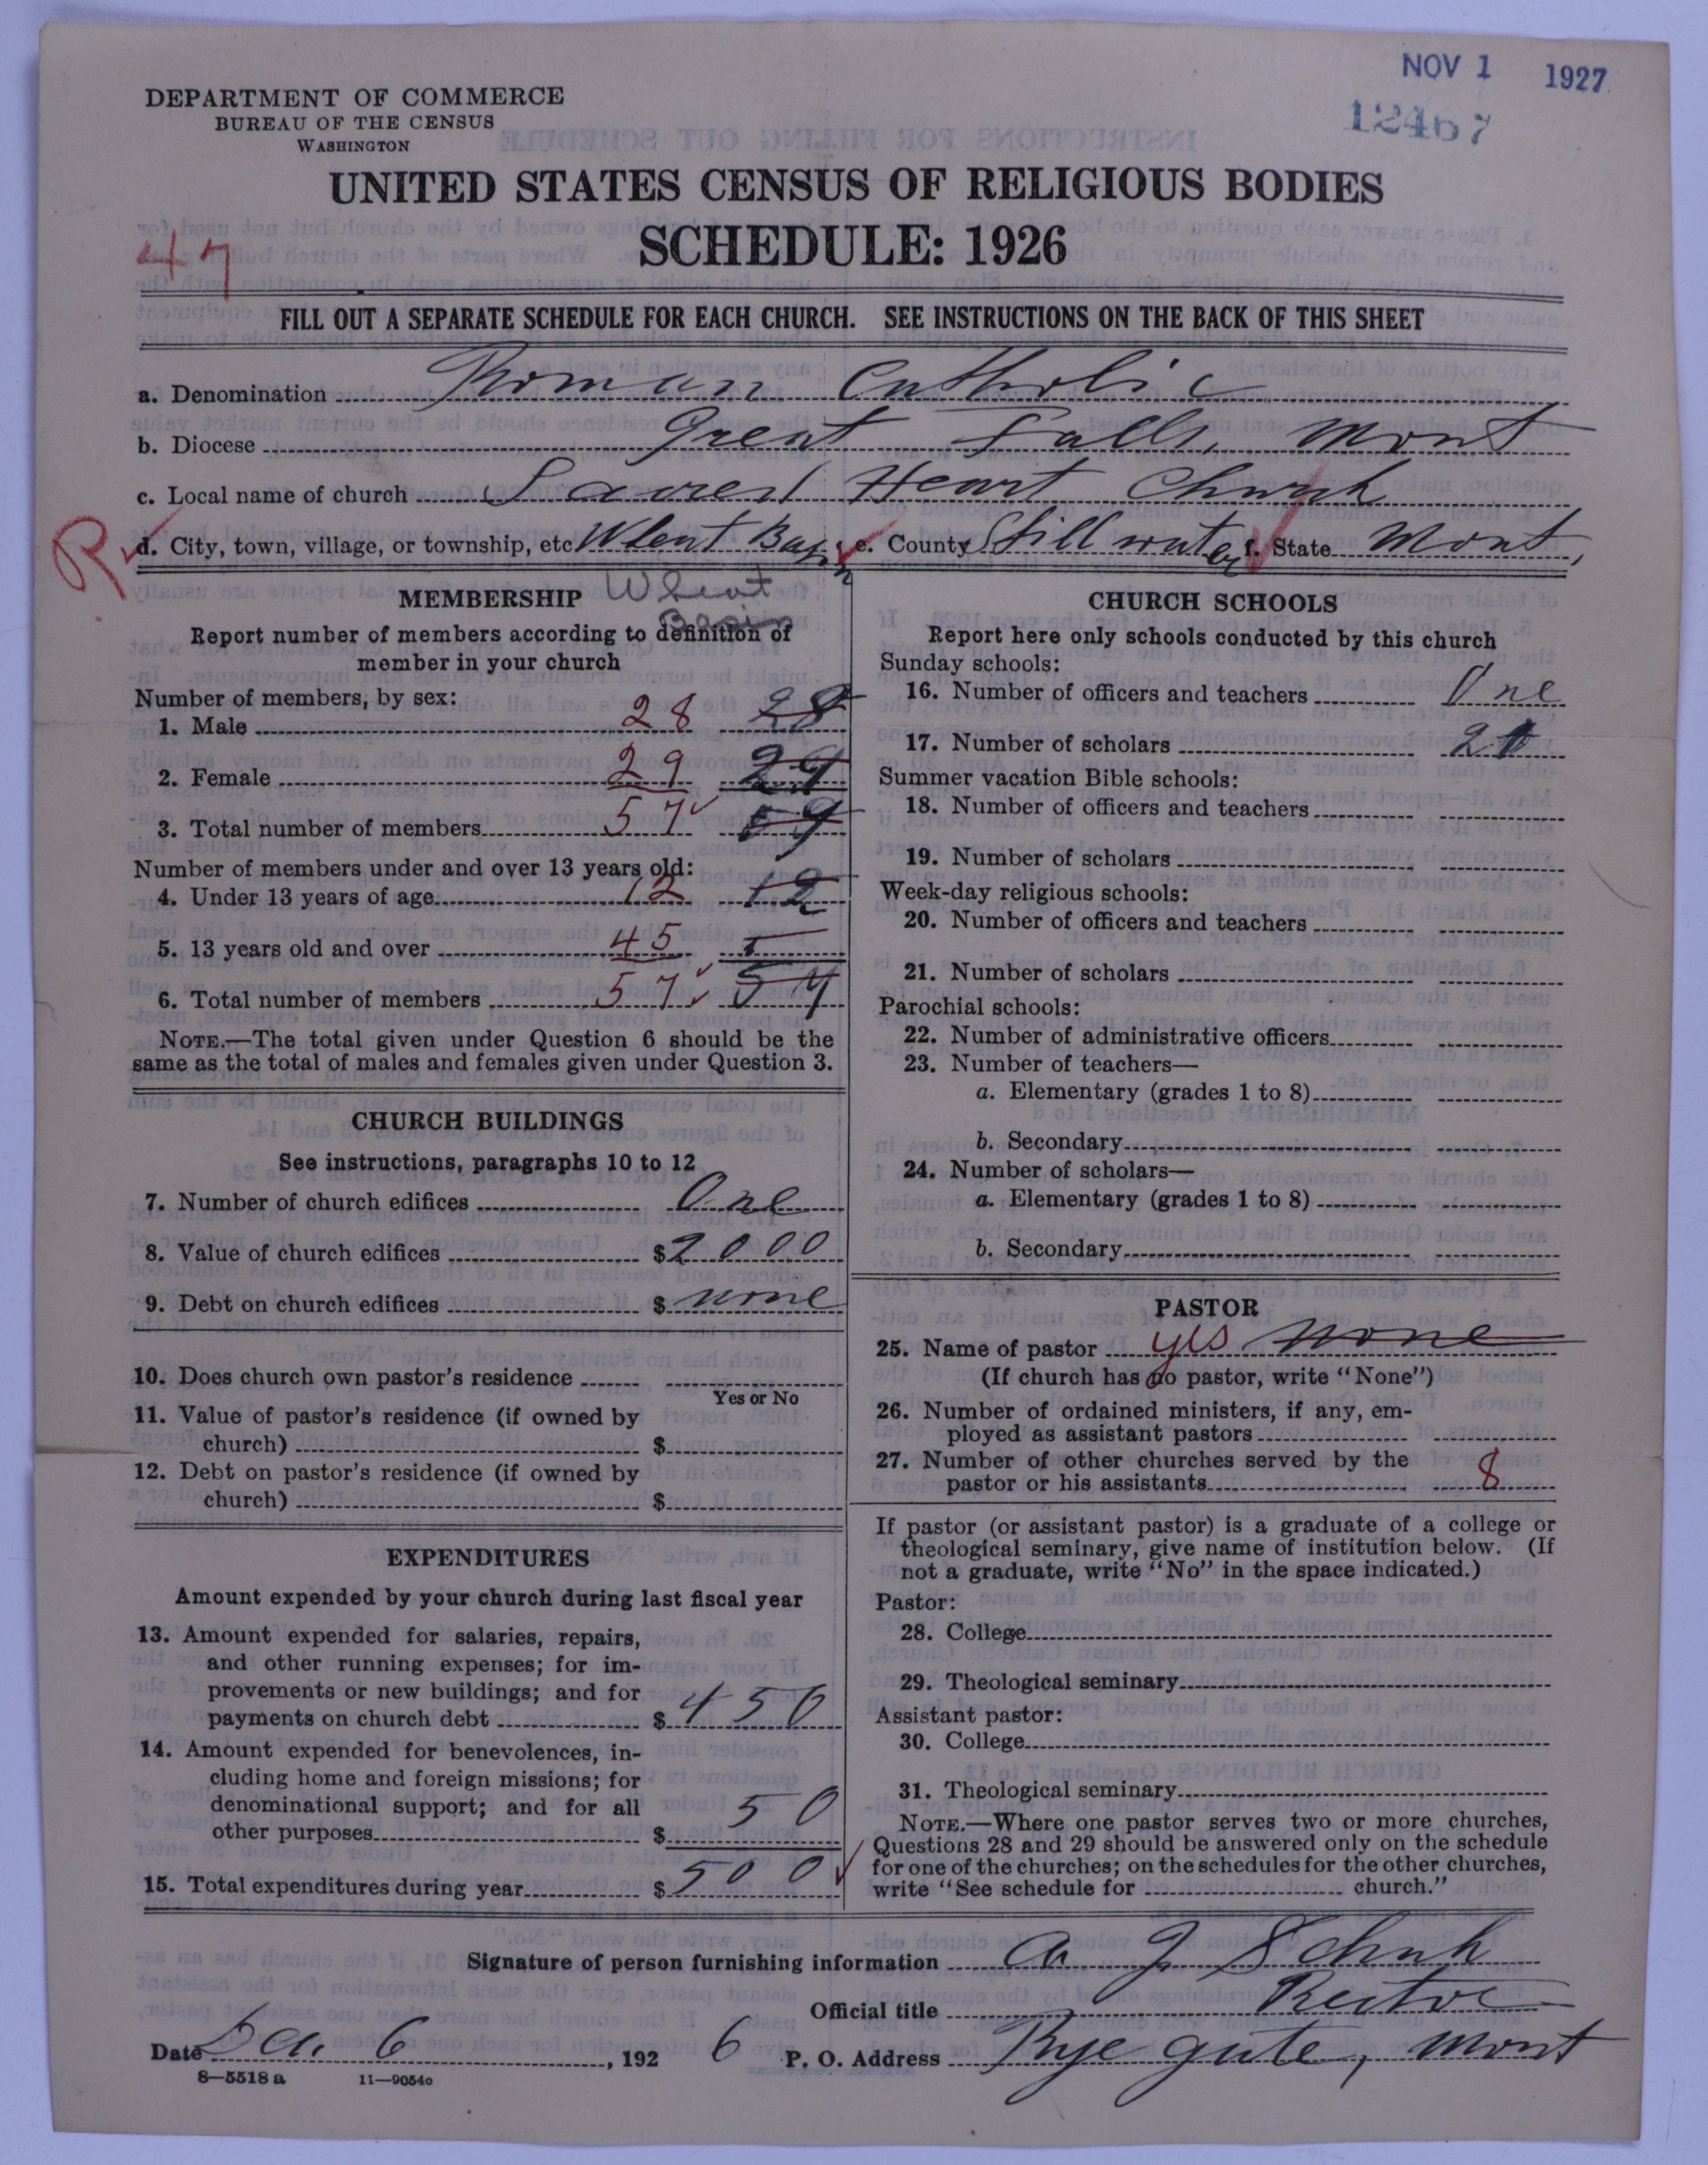 NOV 1 1927
12467
DEPARTMENT OF COMMERCE
BUREAU OF THE CENSUS
WASHINGTON
UNITED STATES CENSUS OF RELIGIOUS BODIES
47
SCHEDULE: 1926
FILL OUT A SEPARATE SCHEDULE FOR EACH CHURCH. SEE INSTRUCTIONS ON THE BACK OF THIS SHEET
a. Denomination Roman Catholic
b. Diocese Great Falls, Mont
c. Local name of church Sacred Heart Church
R
d. City, town, village, or township, etc Wheat Basin e. County Stillwater f. State Mont,
MEMBERSHIP Wheat Basin
Report number of members according to definition of
member in your church
Number of members, by sex:
1. Male 28 28
2. Female 29 29
3. Total number of members 57 59
Number of members under and over 13 years old:
4. Under 13 years of age 12 12
5. 13 years old and over 45
6. Total number of members 57
NOTE.—The total given under Question 6 should be the
same as the total of males and females given under Question 3.
CHURCH BUILDINGS
See instructions, paragraphs 10 to 12
7. Number of church edifices One
8. Value of church edifices $2000
9. Debt on church edifices $ none
10. Does church own pastor's residence
Yes or No
11. Value of pastor's residence (if owned by
church) $
12. Debt on pastor's residence (if owned by
church) $
EXPENDITURES
Amount expended by your church during last fiscal year
13. Amount expended for salaries, repairs,
and other running expenses; for im-
provements or new buildings; and for
payments on church debt $ 450
14. Amount expended for benevolences, in-
cluding home and foreign missions; for
denominational support; and for all
other purposes $ 50
15. Total expenditures during year $ 500
CHURCH SCHOOLS
Report here only schools conducted by this church
Sunday schools:
16. Number of officers and teachers One
17. Number of scholars
Summer vacation Bible schools:
18. Number of officers and teachers
19. Number of scholars
Week-day religious schools:
20. Number of officers and teachers
21. Number of scholars
Parochial schools:
22. Number of administrative officers
23. Number of teachers—
a. Elementary (grades 1 to 8)
b. Secondary
24. Number of scholars—
a. Elementary (grades 1 to 8)
b. Secondary
PASTOR
25. Name of pastor yes none
(If church has no pastor, write "None")
26. Number of ordained ministers, if any, em-
ployed as assistant pastors
27. Number of other churches served by the
pastor or his assistants 8
If pastor (or assistant pastor) is a graduate of a college or
theological seminary, give name of institution below. (If
not a graduate, write "No" in the space indicated.)
Pastor:
28. College
29. Theological seminary
Assistant pastor:
30. College
31. Theological seminary
NOTE.—Where one pastor serves two or more churches,
Questions 28 and 29 should be answered only on the schedule
for one of the churches; on the schedules for the other churches,
write "See schedule for church."
Signature of person furnishing information A J Schuh
Official title Rector
Date Dec. 6, 192 6 P. O. Address Ryegate, Mont
8—5518 a 11—9054o